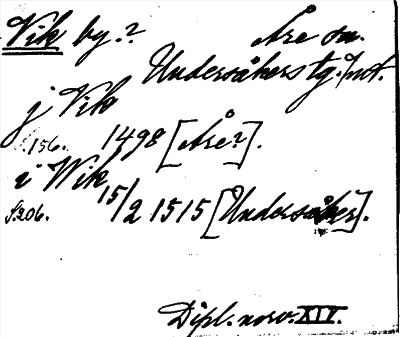 Vik by.? Åre sn.
Undersåkers tg. Jmt.
j Vik
S.156. 1498 [Åre?].
i Wik
S.206. 15/2 1515 [Undersåker].
Dipl. norv. XIV.